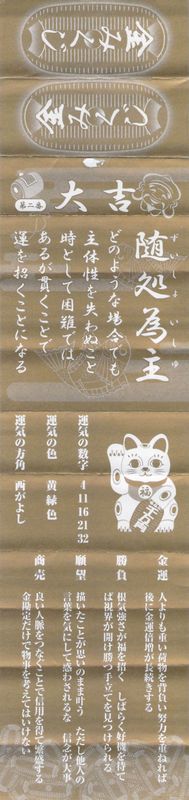 金みくじ
金みくじ
第二番
大吉
随処為主
ずいしょいしゅ
どのような場合でも
主体性を失わぬこと
時として困難では
あるが貫くことで
運を招くことになる
福
千万両
運気の数字 4 11 16 21 32
運気の色 黄緑色
運気の方角 西がよし
金運 人よりも重い荷物を背負い努力を重ねれば
後に金運倍増が長続きする
勝負 根気強さが福を招く しばらく好機を待て
ば視界が開け勝つ手立てを見つけられる
願望 描いたことが思いのまま叶う ただし他人の
言葉を気にして惑わされるな 信念が大事
商売 良い人脈をつなぐことで信用を得て繁盛する
金勘定だけで物事を考えてはいけない